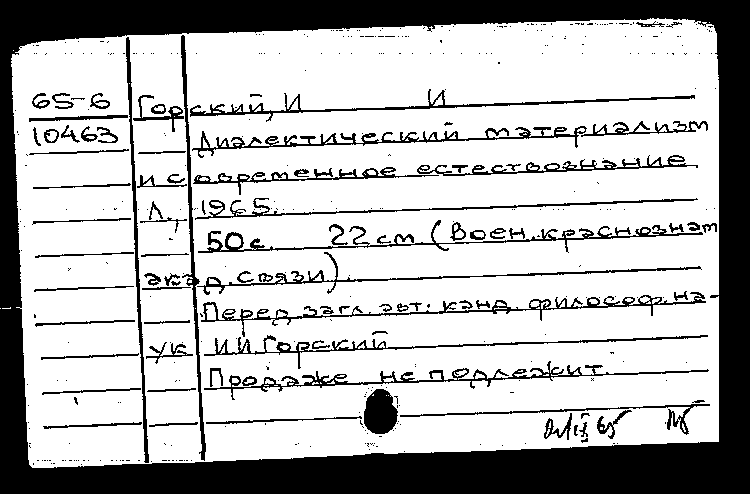 65-6 Горский, И И
10463 Диалектический материализм
и современное естествознание
Л., 1965.
50 с. 22 см (Воен. краснознам
акад. связи).
Перед загл. авт.: канд. философ. на-
ук И.И. Горский
Продаже не подлежит.
65